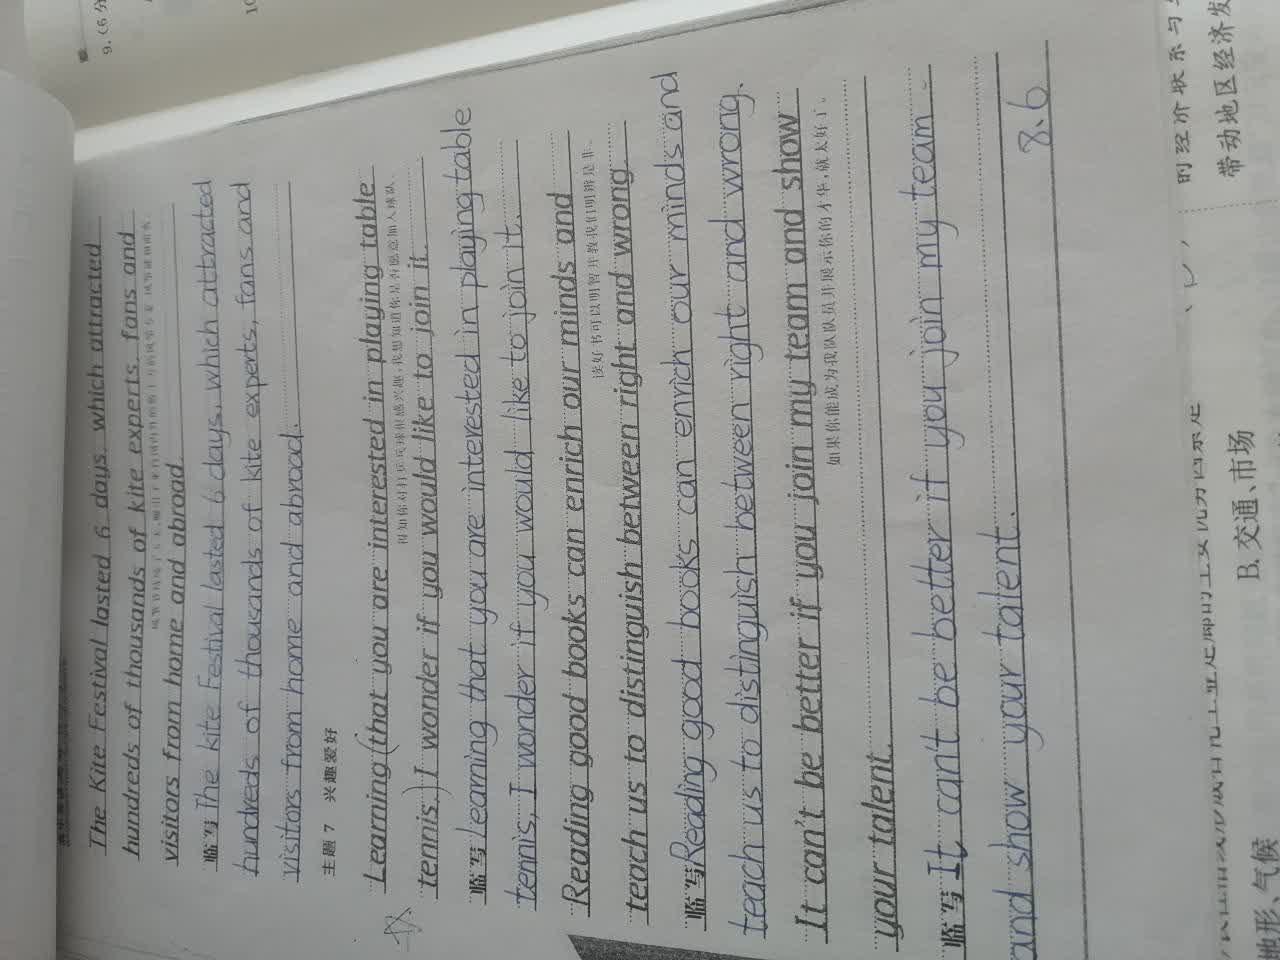 The Kite Festival lasted 6 days, which attracted
hundreds of thousands of kite experts, fans and
visitors from home and abroad.
临写 The kite Festival lasted 6 days, which attracted
hundreds of thousands of kite experts, fans and
visitors from home and abroad.
主题 7 兴趣爱好
Learning (that you are interested in playing table
得知你对打乒乓球很感兴趣,我想知道你是否愿意加入球队。
tennis,) I wonder if you would like to join it.
临写 Learning that you are interested in playing table
tennis, I wonder if you would like to join it.
Reading good books can enrich our minds and
读好书可以明智并教我们明辨是非。
teach us to distinguish between right and wrong.
临写 Reading good books can enrich our minds and
teach us to distinguish between right and wrong.
It can't be better if you join my team and show
如果你能成为我队队员并展示你的才华,就太好了。
your talent.
临写 It can't be better if you join my team
and show your talent.
8.6
9. (6分
10
的经济联系与
带动地区经济发
B. 交通、市场
地形、气候